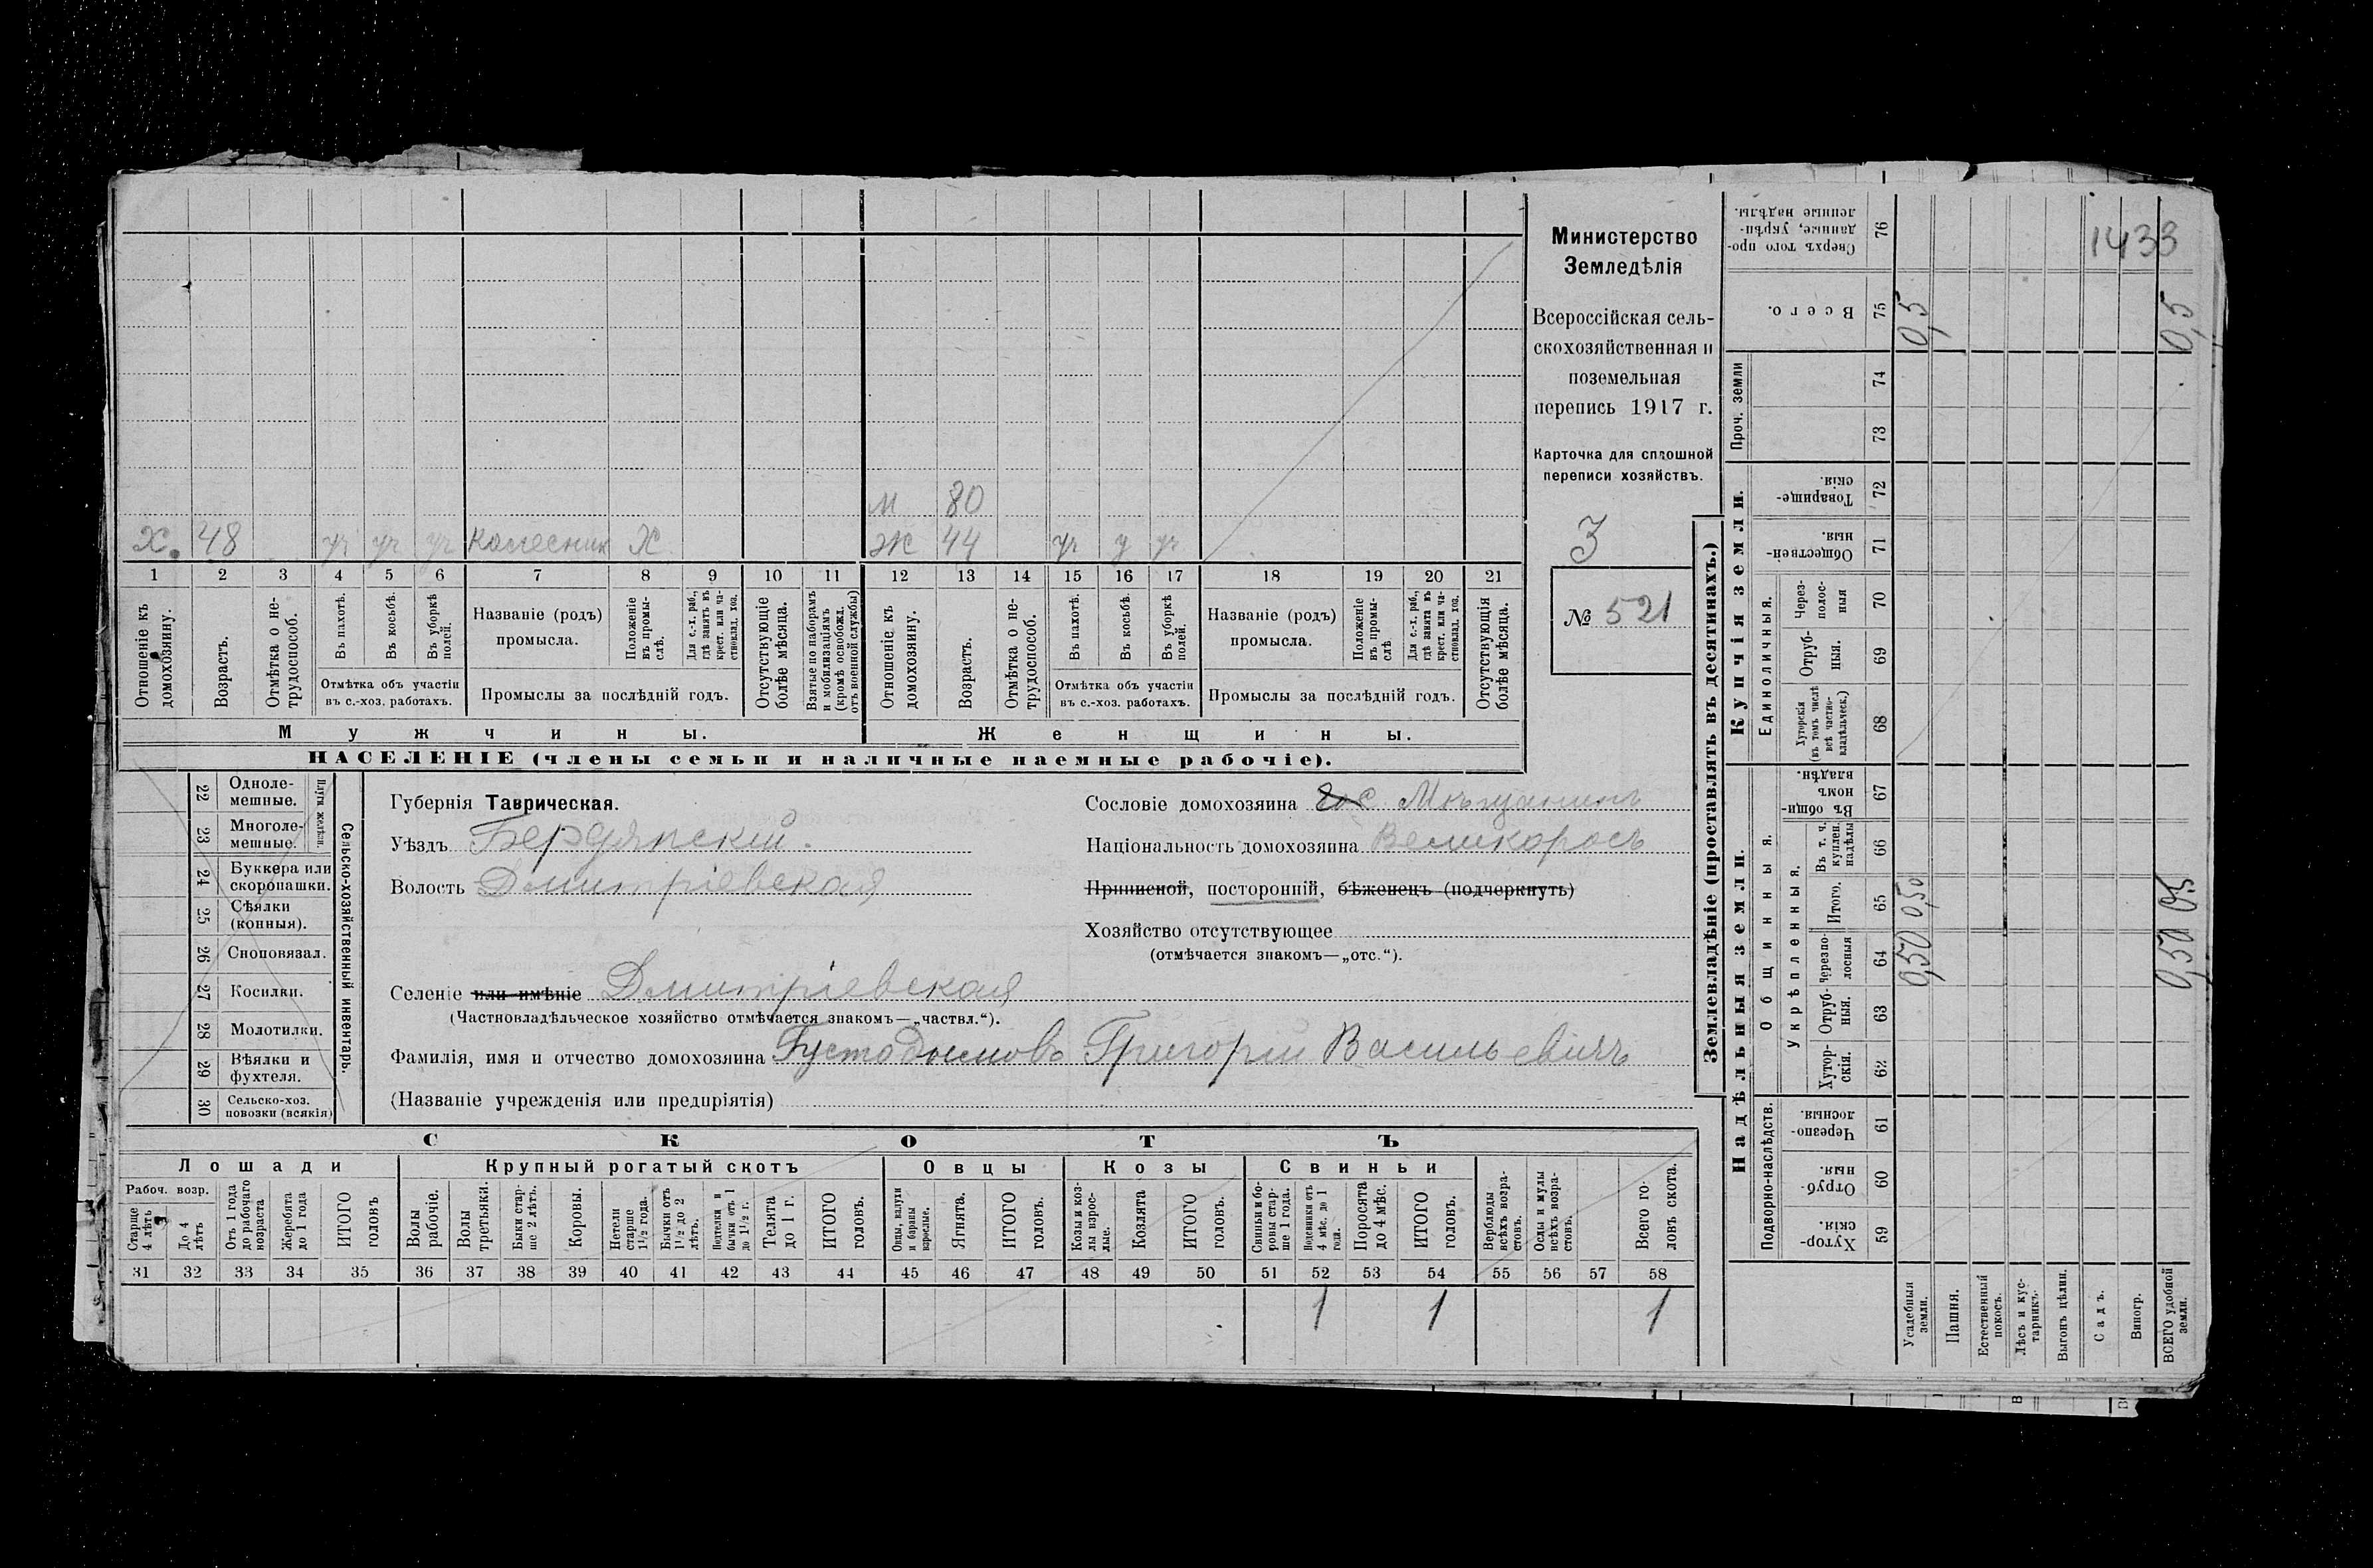 м 80
х. 48 уч уч уч колесник Х ж 44 уч у уч
1 2 3 4 5 6 7 8 9 10 11 12 13 14 15 16 17 18 19 20 21
Отношеніе къ домохозяину.
Возрастъ.
Отмѣтка о нетрудоспособ.
Въ пахотѣ.
Въ косьбѣ.
Въ уборкѣ полей.
Отмѣтка объ участіи
въ с.-хоз. работахъ.
Названіе (родъ)
промысла.
Положеніе въ промыслѣ.
Для с.-х. раб., гдѣ занятъ въ крест. или частновлад. хоз.
Промыслы за послѣдній годъ.
Отсутствующіе болѣе мѣсяца.
Взятые по наборамъ и мобилизаціямъ (кромѣ освобожд. отъ военной службы)
Отношеніе къ домохозяину.
Возрастъ.
Отмѣтка о нетрудоспособ.
Въ пахотѣ.
Въ косьбѣ.
Въ уборкѣ полей.
Отмѣтка объ участіи
въ с.-хоз. работахъ.
Названіе (родъ)
промысла.
Положеніе въ промыслѣ
Для с.-х. раб., гдѣ занята въ крест. или частновлад. хоз.
Промыслы за послѣдній годъ.
Отсутствующія болѣе мѣсяца.
Мужчины. Женщины.
НАСЕЛЕНІЕ (члены семьи и наличные наемные рабочіе).
Министерство
Земледѣлія
Всероссійская сель-
скохозяйственная и
поземельная
перепись 1917 г.
Карточка для сплошной
переписи хозяйствъ.
3
№ 521
22 Одноле-
мешные.
23 Многоле-
мешные.
Плуги желѣзн.
24 Буккера или
скоропашки.
25 Сѣялки
(конныя).
26 Сноповязал.
27 Косилки.
28 Молотилки.
29 Вѣялки и
фухтеля.
30 Сельско-хоз.
повозки (всякія)
Сельско-хозяйственный инвентарь.
Губернія Таврическая.
Уѣздъ Бердянскій.
Волость Дмитріевская
Сословіе домохозяина Мѣщанинъ
Національность домохозяина Великоросъ
Приписной, посторонній, бѣженецъ (подчеркнуть)
Хозяйство отсутствующее
(отмѣчается знакомъ—„отс.“).
Селеніе или имѣніе Дмитріевская
(Частновладѣльческое хозяйство отмѣчается знакомъ—„частвл.“).
Фамилія, имя и отчество домохозяина Григорій Васильевичъ
(Названіе учрежденія или предпріятія)
СКОТЪ
Лошади Крупный рогатый скотъ Овцы Козы Свиньи
Рабоч. возр.
Старше 4 лѣтъ
До 4 лѣтъ
Отъ 1 года до рабочаго возраста
Жеребята до 1 года
ИТОГО головъ
Волы рабочіе.
Волы третьяки.
Быки старше 2 лѣтъ.
Коровы.
Нетели старше 1½ года.
Бычки отъ 1½ до 2 лѣтъ.
Подтелки и бычки отъ 1 до 1½ г.
Телята до 1 г.
ИТОГО головъ.
Овцы, валухи и бараны взрослые.
Ягнята.
ИТОГО головъ.
Козы и козлы взрослые.
Козлята
ИТОГО головъ.
Свиньи и боровы старше 1 года.
Подсвинки отъ 4 мѣс. до 1 года.
Поросята до 4 мѣс.
ИТОГО головъ.
Верблюды всѣхъ возрастовъ.
Ослы и мулы всѣхъ возрастовъ.
Всего головъ скота.
31 32 33 34 35 36 37 38 39 40 41 42 43 44 45 46 47 48 49 50 51 52 53 54 55 56 57 58
1 1 1
Землевладѣніе (проставлять въ десятинахъ.)
Надѣльныя земли. Купчія земли.
Проч. земли
Подворно-наслѣдств.
Общинныя.
Укрѣпленныя.
Единоличныя.
Сверхъ того проданные, укрѣпленные надѣлы. 76
1433
Всего. 75 0,5 0,5
74
73
Товарищескія. 72
Общественныя. 71
Черезполосныя 70
Отрубныя. 69
Хуторскія (въ томъ числѣ всѣ частновладѣльческ.) 68
Въ общинномъ владѣн. 67
Въ т. ч. куплен. надѣлы 66
Итого. 65 0,50 0,5
Черезполосныя 64 0,50 0,50
Отрубныя. 63
Хуторскія. 62
Черезполосныя. 61
Отрубныя. 60
Хуторскія. 59
Усадебныя земли.
Пашня.
Естественный покосъ.
Лѣсъ и кустарникъ.
Выгонъ цѣлин.
Садъ.
Виногр.
ВСЕГО удобной земли.